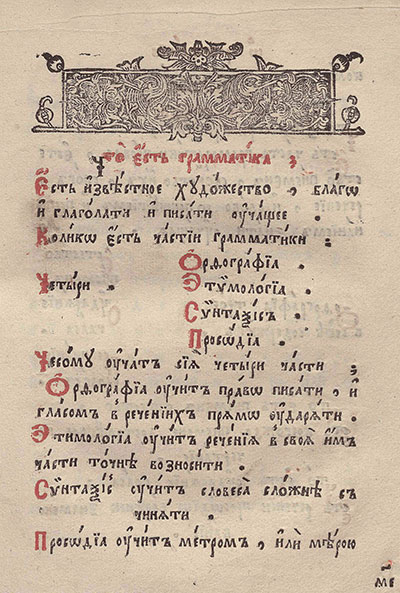 Что̀ є҆́сть грамма́тїка ;
Є҆́сть и҆звѣ́стное хꙋдо́жество , бла́гѡ
и҆ глаго́лати и҆ писа́ти ᲂу҆ча́щее .
Коли́кѡ є҆́сть часті́й грамма́тїки :
Ѻ҆рѳогра́фїа .
Четы́ри . Э҆тѷмоло́гїа .
Сѵ́нтаѯїсъ .
Просѡ́дїа .
Чесомꙋ̀ ᲂу҆ча́тъ сїѧ̑ четы́ри ча́сти ;
Ѻ҆рѳогра́фїа ᲂу҆чи́тъ пра́вѡ писа́ти , и҆
гла́сомъ в рече́нїихъ прѧ́мѡ ᲂу҆дарѧ́ти .
Э҆тимоло́гїа ᲂу҆чи́тъ рече́нїѧ в своѧ̑ и҆̀мъ
ча́сти то́чнѣ возноси́ти .
Сѵ́нтаѯїсъ ᲂу҆чи́тъ словеса̀ сло́жнѣ съ
чинѧ́ти .
Просѡ́дїа ᲂу҆чи́тъ ме́тромъ , и҆лѝ мѣ́рою